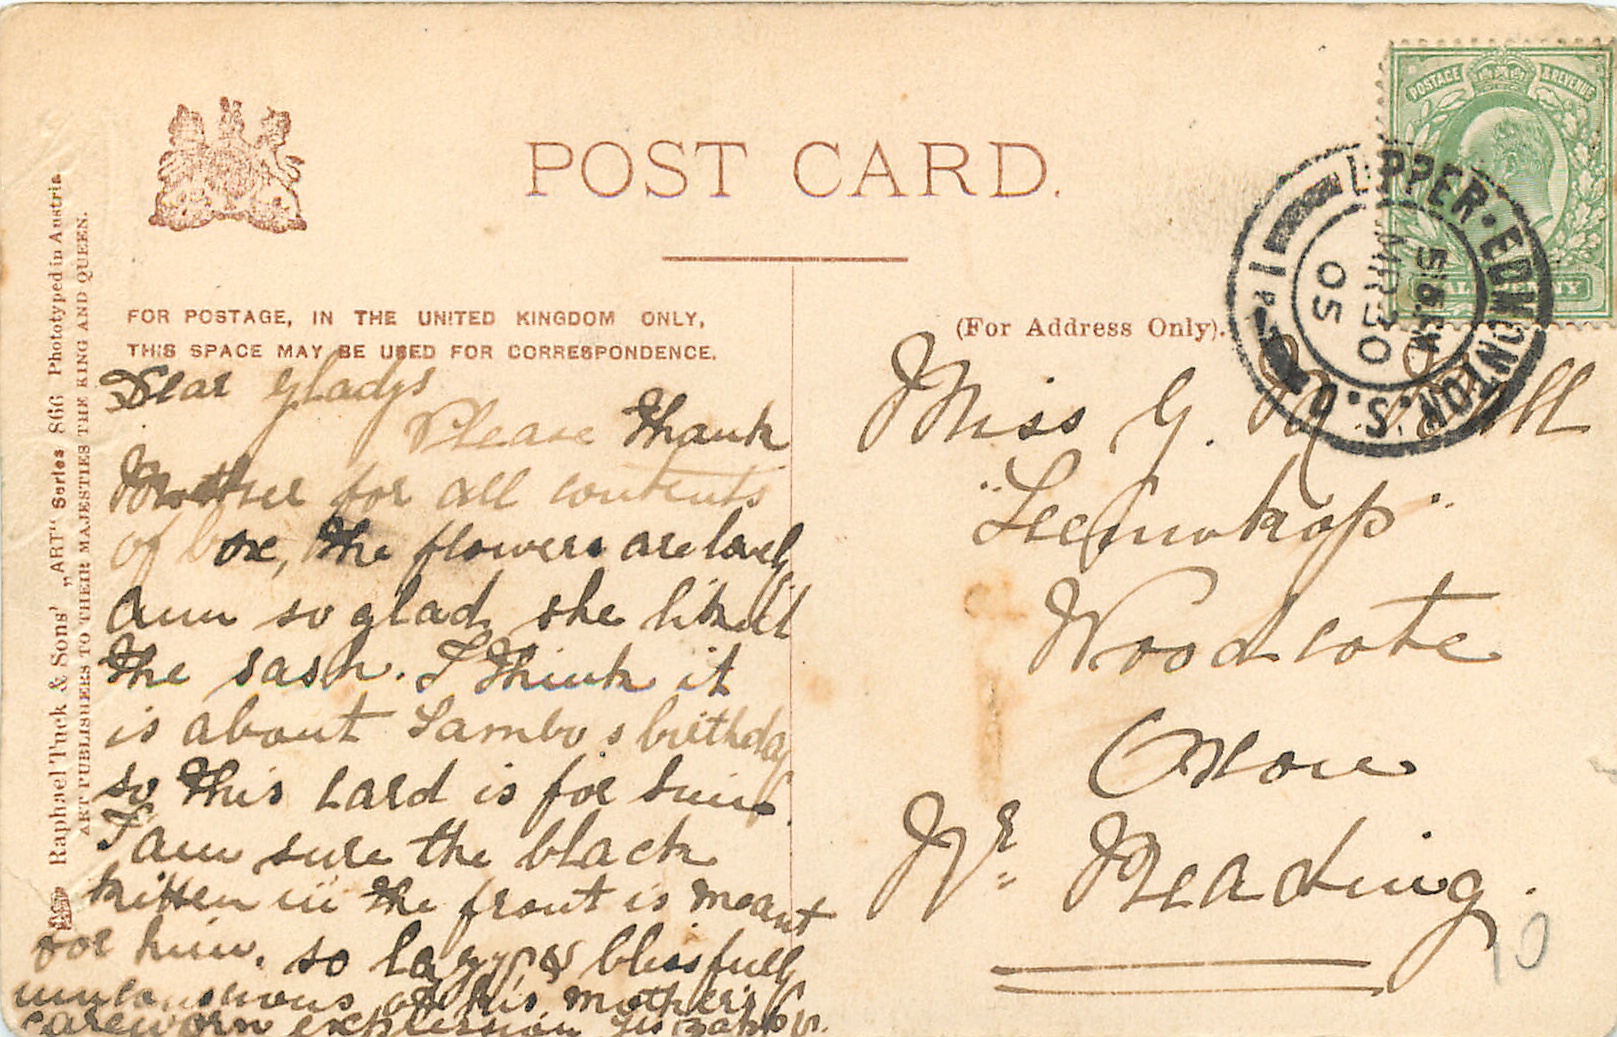 POST CARD.
FOR POSTAGE, IN THE UNITED KINGDOM ONLY,
THIS SPACE MAY BE USED FOR CORRESPONDENCE.
(For Address Only).
Raphael Tuck & Sons' „ART" Series 866 Phototyped in Austria
ART PUBLISHERS TO THEIR MAJESTIES THE KING AND QUEEN.
POSTAGE & REVENUE
UPPER·EDMONTON. S.O.
MR 30
05
Dear Gladys
Please thank
Mother for all contents
of box, the flowers are lovely
am so glad she liked
the sash. I think it
is about Sambo's birthday
so this card is for him.
I am sure the black
kitten in the front is meant
for him. so lazy & blissfully
unconscious of his mother's
careworn expression
Miss G.
Woodcote
Oxon
Nr. Reading.
10